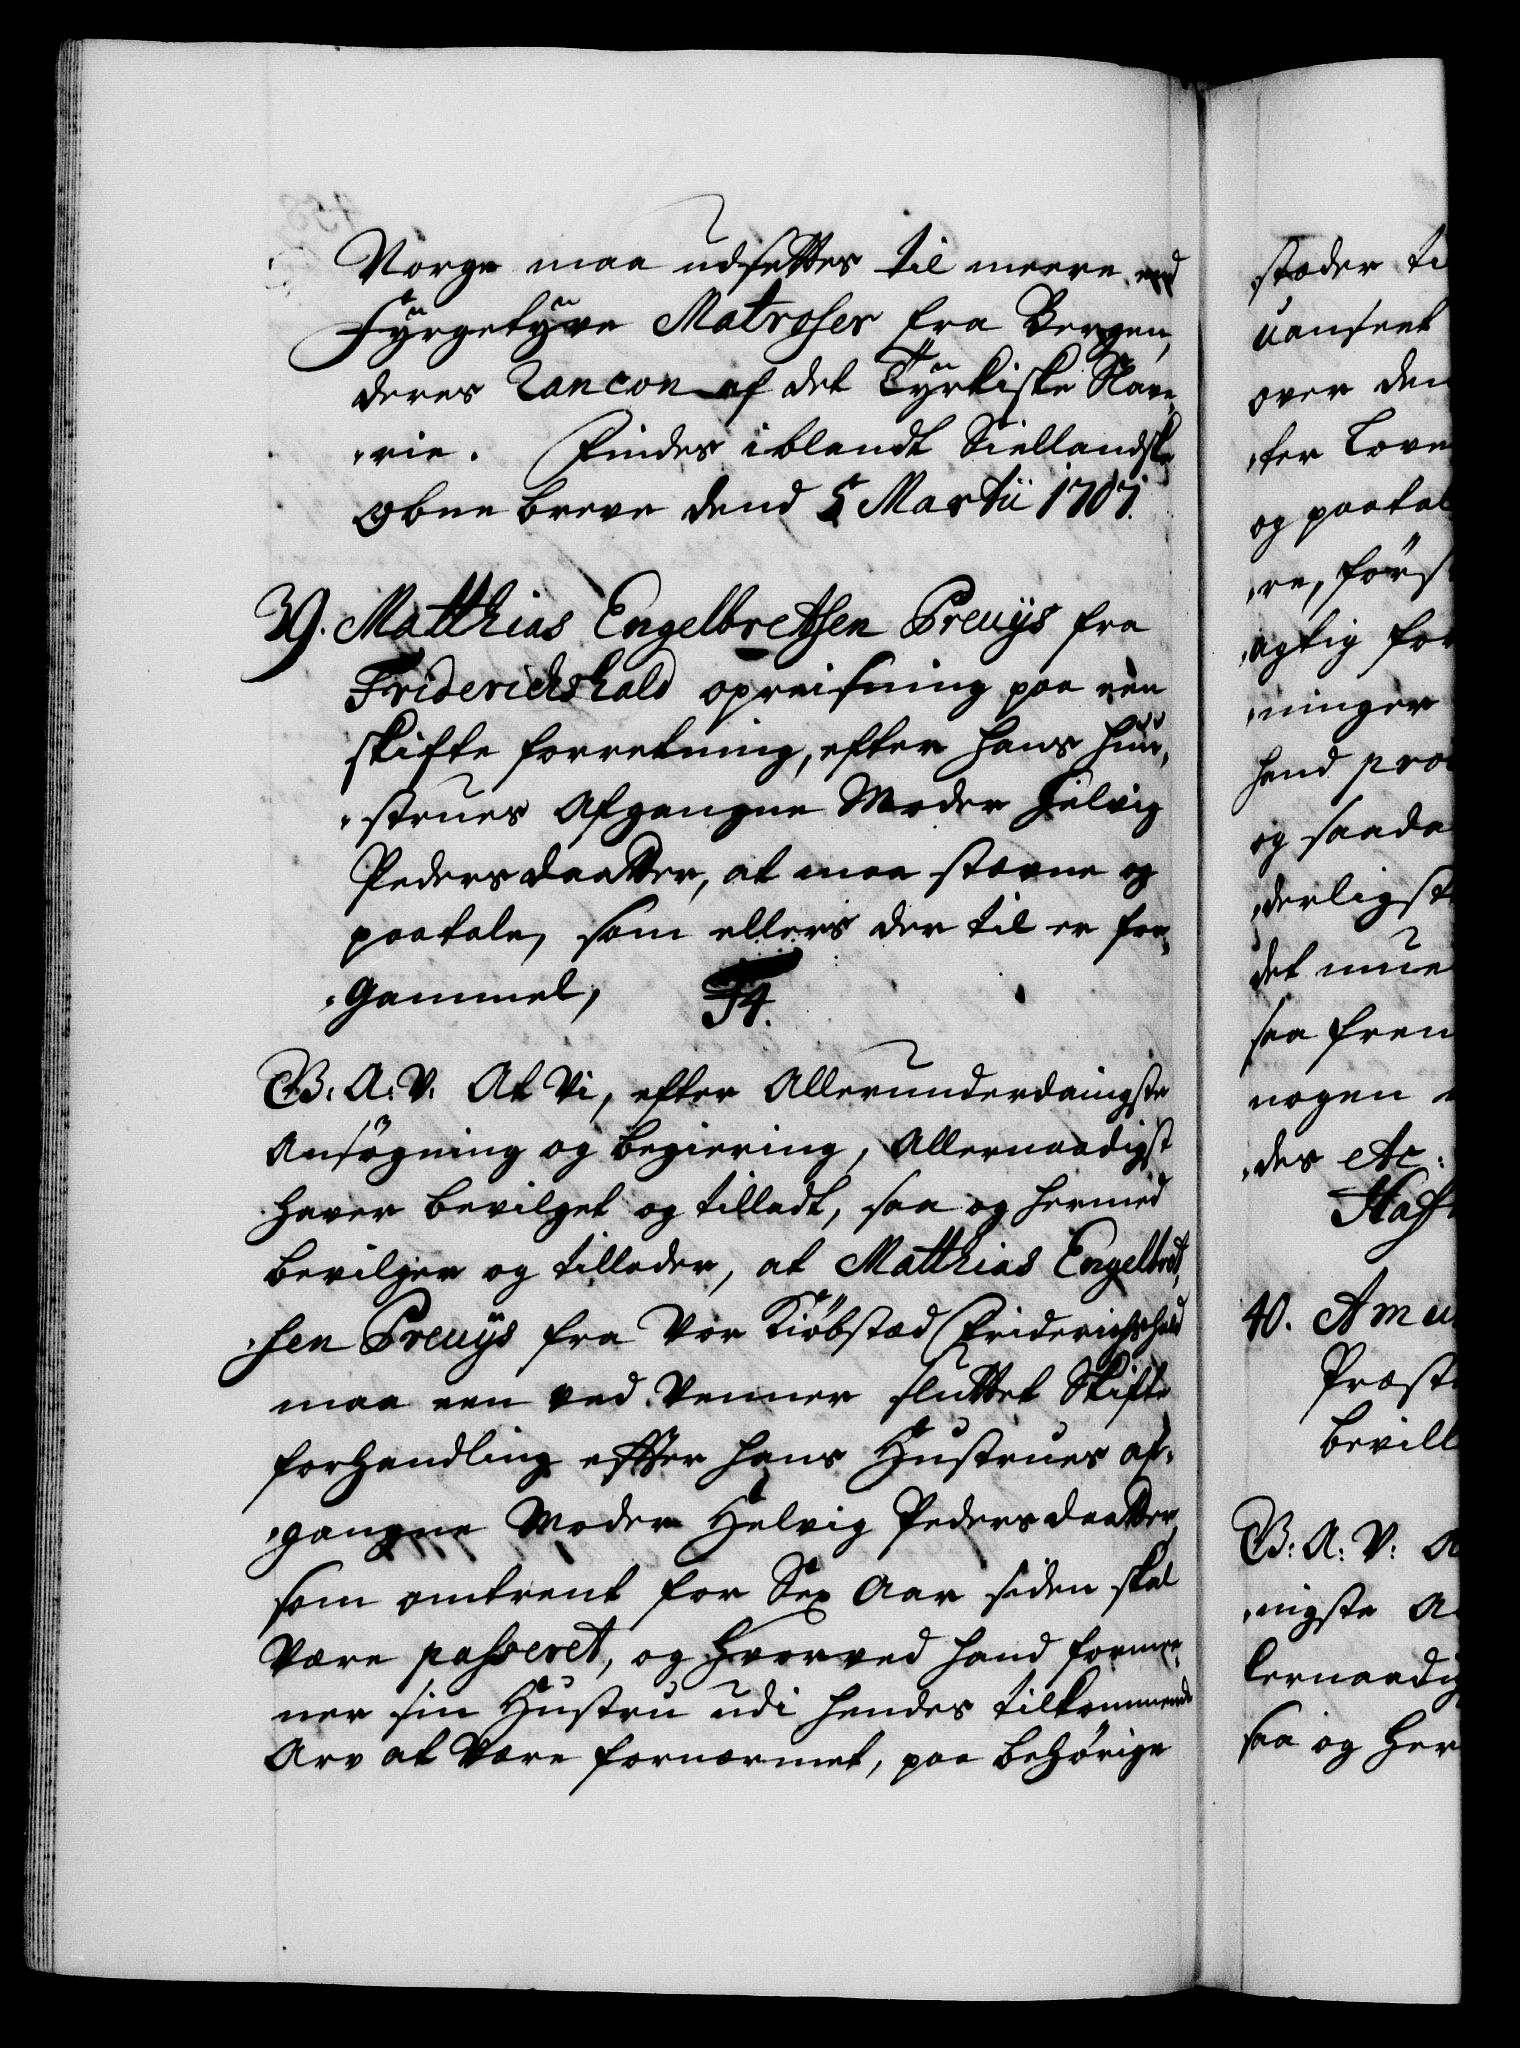 Norge maa udsettes til meere end
Fÿrgetÿve Matroser fra Bergen,
deres Rancon af det Tÿrkiske Slave,
„rie. Findes iblandt Siellandske
Obne breve dend 5 Martii 1707.
39. Matthias Engelbretsen Preuÿs fra
Friderichshald opreisning paa een
skifte forretning, efter hans Huu,
„strues Afgangne Moder Helvig
Pedersdaatter, at maa stævne og
paatale, som ellers der til er for,
„Gammel,
F4.
B: A: V: At Vi, efter Allerunderdanigste
Ansøgning og begiering, Allernaadigst
haver bevilget og tilladt, saa og hermed
bevilger og tillader, at Matthias Engelbret,
„sen Preuÿs fra Vor Kiøbstæd Friderichshald
maa een ved Venner sluttet Skifte
forhandling efter hans Hustrues af,
„gangne Moder Helvig Pedersdaatter
som omtrent for Sex Aar siden skal
Være passeret, og hvorved hand formee,
ner sin Hustru udi hendes tilkommende
Arv at Være fornærmet, paa behørige
stæder ti
uanseet
over den
„ter Love
og paatal
„re, først
„agtig for
„ninger
hand pro
og saada
„derligst
det mue
saa frem
nogen
„des etc:
Haff
40. Amu
Præst
bevill
B: A: V: A
„nigste A
lernaadig
saa og her